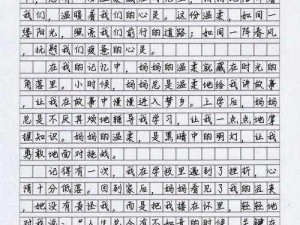 我们，温暖着我们的心灵。这份温柔，如同一
缕阳光，照亮我们前行的道路；如同一阵春风
，抚慰我们疲惫的心灵。
在我的记忆中，妈妈的温柔就藏在时光的
角落里。小时候，妈妈总是温柔地给我讲故事
，让我在故事中慢慢进入梦乡。上学后，妈妈
总是不厌其烦地辅导我学习，让我一点一点地掌
握知识。妈妈的温柔，是黑暗中的明灯，让我
勇敢地面对挑战。
记得有一次，我在学校里遇到了挫折，心
情十分低落。回到家后，妈妈看见了我的沮丧
，她没有责怪我，而是把我搂在怀里，轻轻地
对我说：“人生总会有不如意的时候，关键在